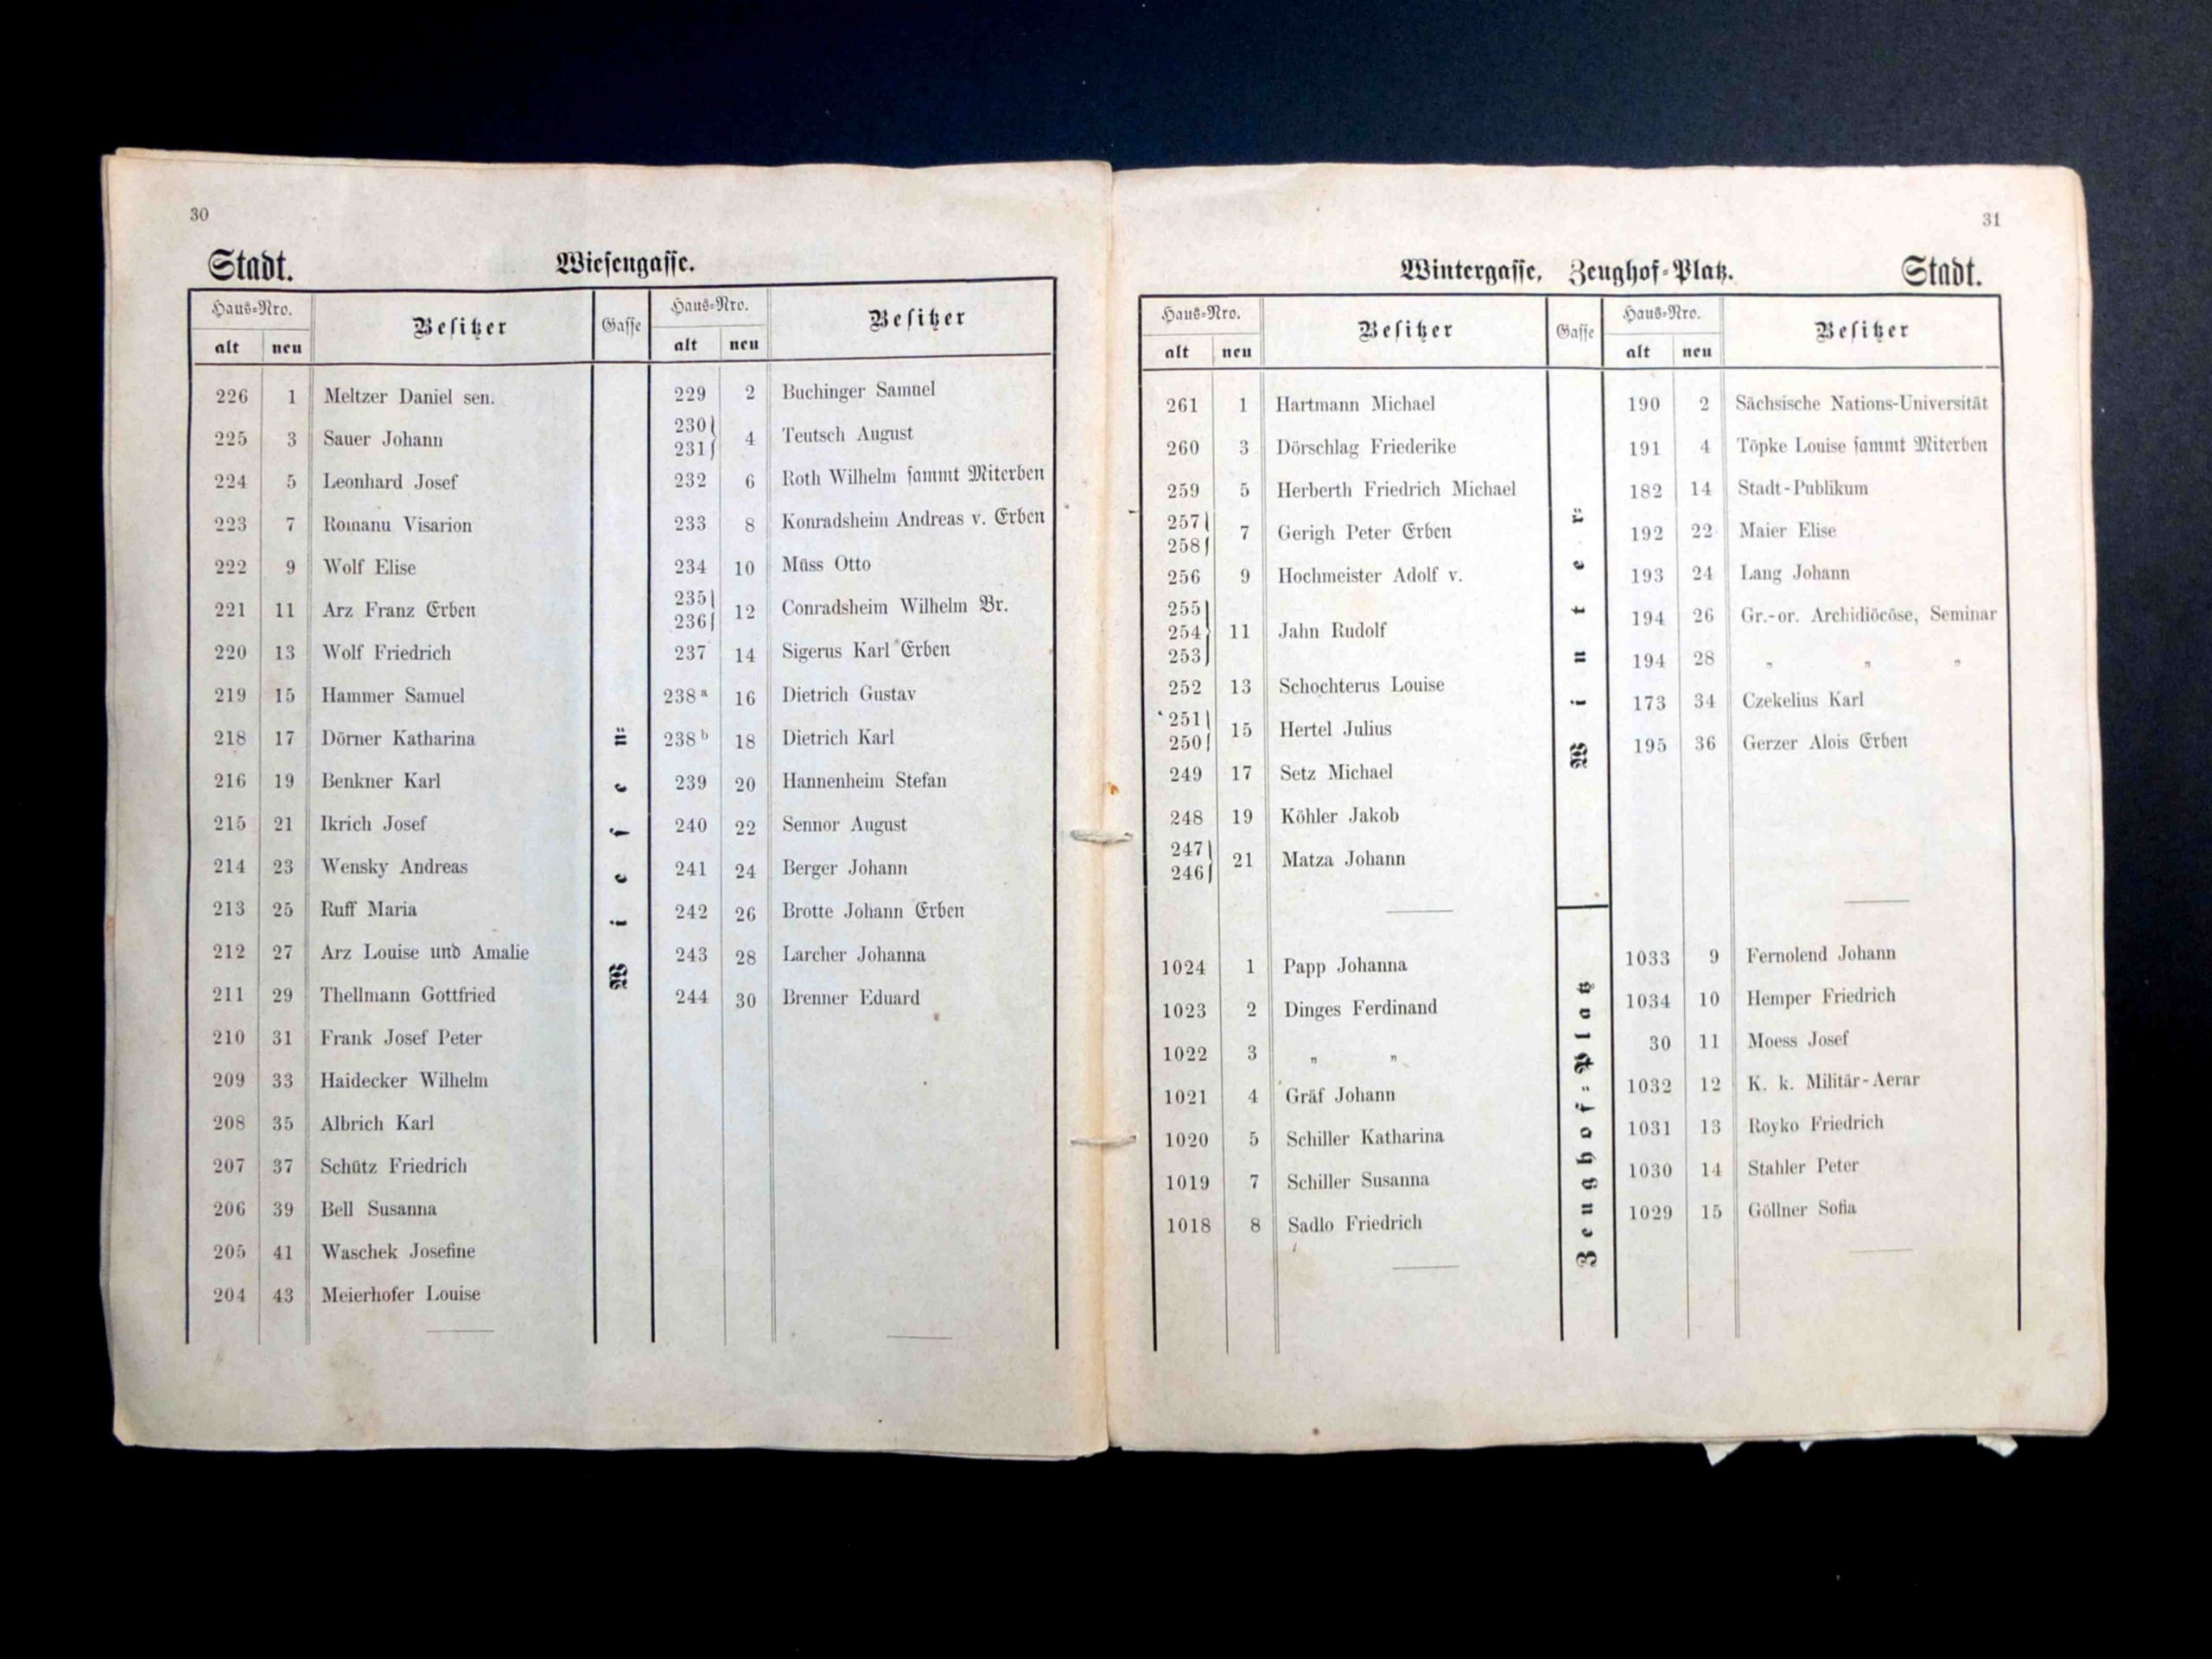 30
Stadt. Wiesengasse.
Haus-Nro. Besitzer Gasse Haus-Nro. Besitzer
alt neu alt neu
226 1 Meltzer Daniel sen.
225 3 Sauer Johann
224 5 Leonhard Josef
223 7 Romanu Visarion
222 9 Wolf Elise
221 11 Arz Franz Erben
220 13 Wolf Friedrich
219 15 Hammer Samuel
218 17 Dörner Katharina
216 19 Benkner Karl
215 21 Ikrich Josef
214 23 Wensky Andreas
213 25 Ruff Maria
212 27 Arz Louise und Amalie
211 29 Thellmann Gottfried
210 31 Frank Josef Peter
209 33 Haidecker Wilhelm
208 35 Albrich Karl
207 37 Schütz Friedrich
206 39 Bell Susanna
205 41 Waschek Josefine
204 43 Meierhofer Louise
Wiesen=
229 2 Buchinger Samuel
230
231 4 Teutsch August
232 6 Roth Wilhelm sammt Miterben
233 8 Konradsheim Andreas v. Erben
234 10 Müss Otto
235
236 12 Conradsheim Wilhelm Br.
237 14 Sigerus Karl Erben
238 a 16 Dietrich Gustav
238 b 18 Dietrich Karl
239 20 Hannenheim Stefan
240 22 Sennor August
241 24 Berger Johann
242 26 Brotte Johann Erben
243 28 Larcher Johanna
244 30 Brenner Eduard
31
Wintergasse, Zeughof-Platz. Stadt.
Haus-Nro. Besitzer Gasse Haus-Nro. Besitzer
alt neu alt neu
261 1 Hartmann Michael
260 3 Dörschlag Friederike
259 5 Herberth Friedrich Michael
257
258 7 Gerigh Peter Erben
256 9 Hochmeister Adolf v.
255
254 11 Jahn Rudolf
253
252 13 Schochterus Louise
251
250 15 Hertel Julius
249 17 Setz Michael
248 19 Köhler Jakob
247
246 21 Matza Johann
Winter=
190 2 Sächsische Nations-Universität
191 4 Töpke Louise sammt Miterben
182 14 Stadt-Publikum
192 22 Maier Elise
193 24 Lang Johann
194 26 Gr.-or. Archidiöcöse, Seminar
194 28 " " "
173 34 Czekelius Karl
195 36 Gerzer Alois Erben
1024 1 Papp Johanna
1023 2 Dinges Ferdinand
1022 3 " "
1021 4 Gräf Johann
1020 5 Schiller Katharina
1019 7 Schiller Susanna
1018 8 Sadlo Friedrich
Zeughof-Platz
1033 9 Fernolend Johann
1034 10 Hemper Friedrich
30 11 Moess Josef
1032 12 K. k. Militär-Aerar
1031 13 Royko Friedrich
1030 14 Stahler Peter
1029 15 Göllner Sofia